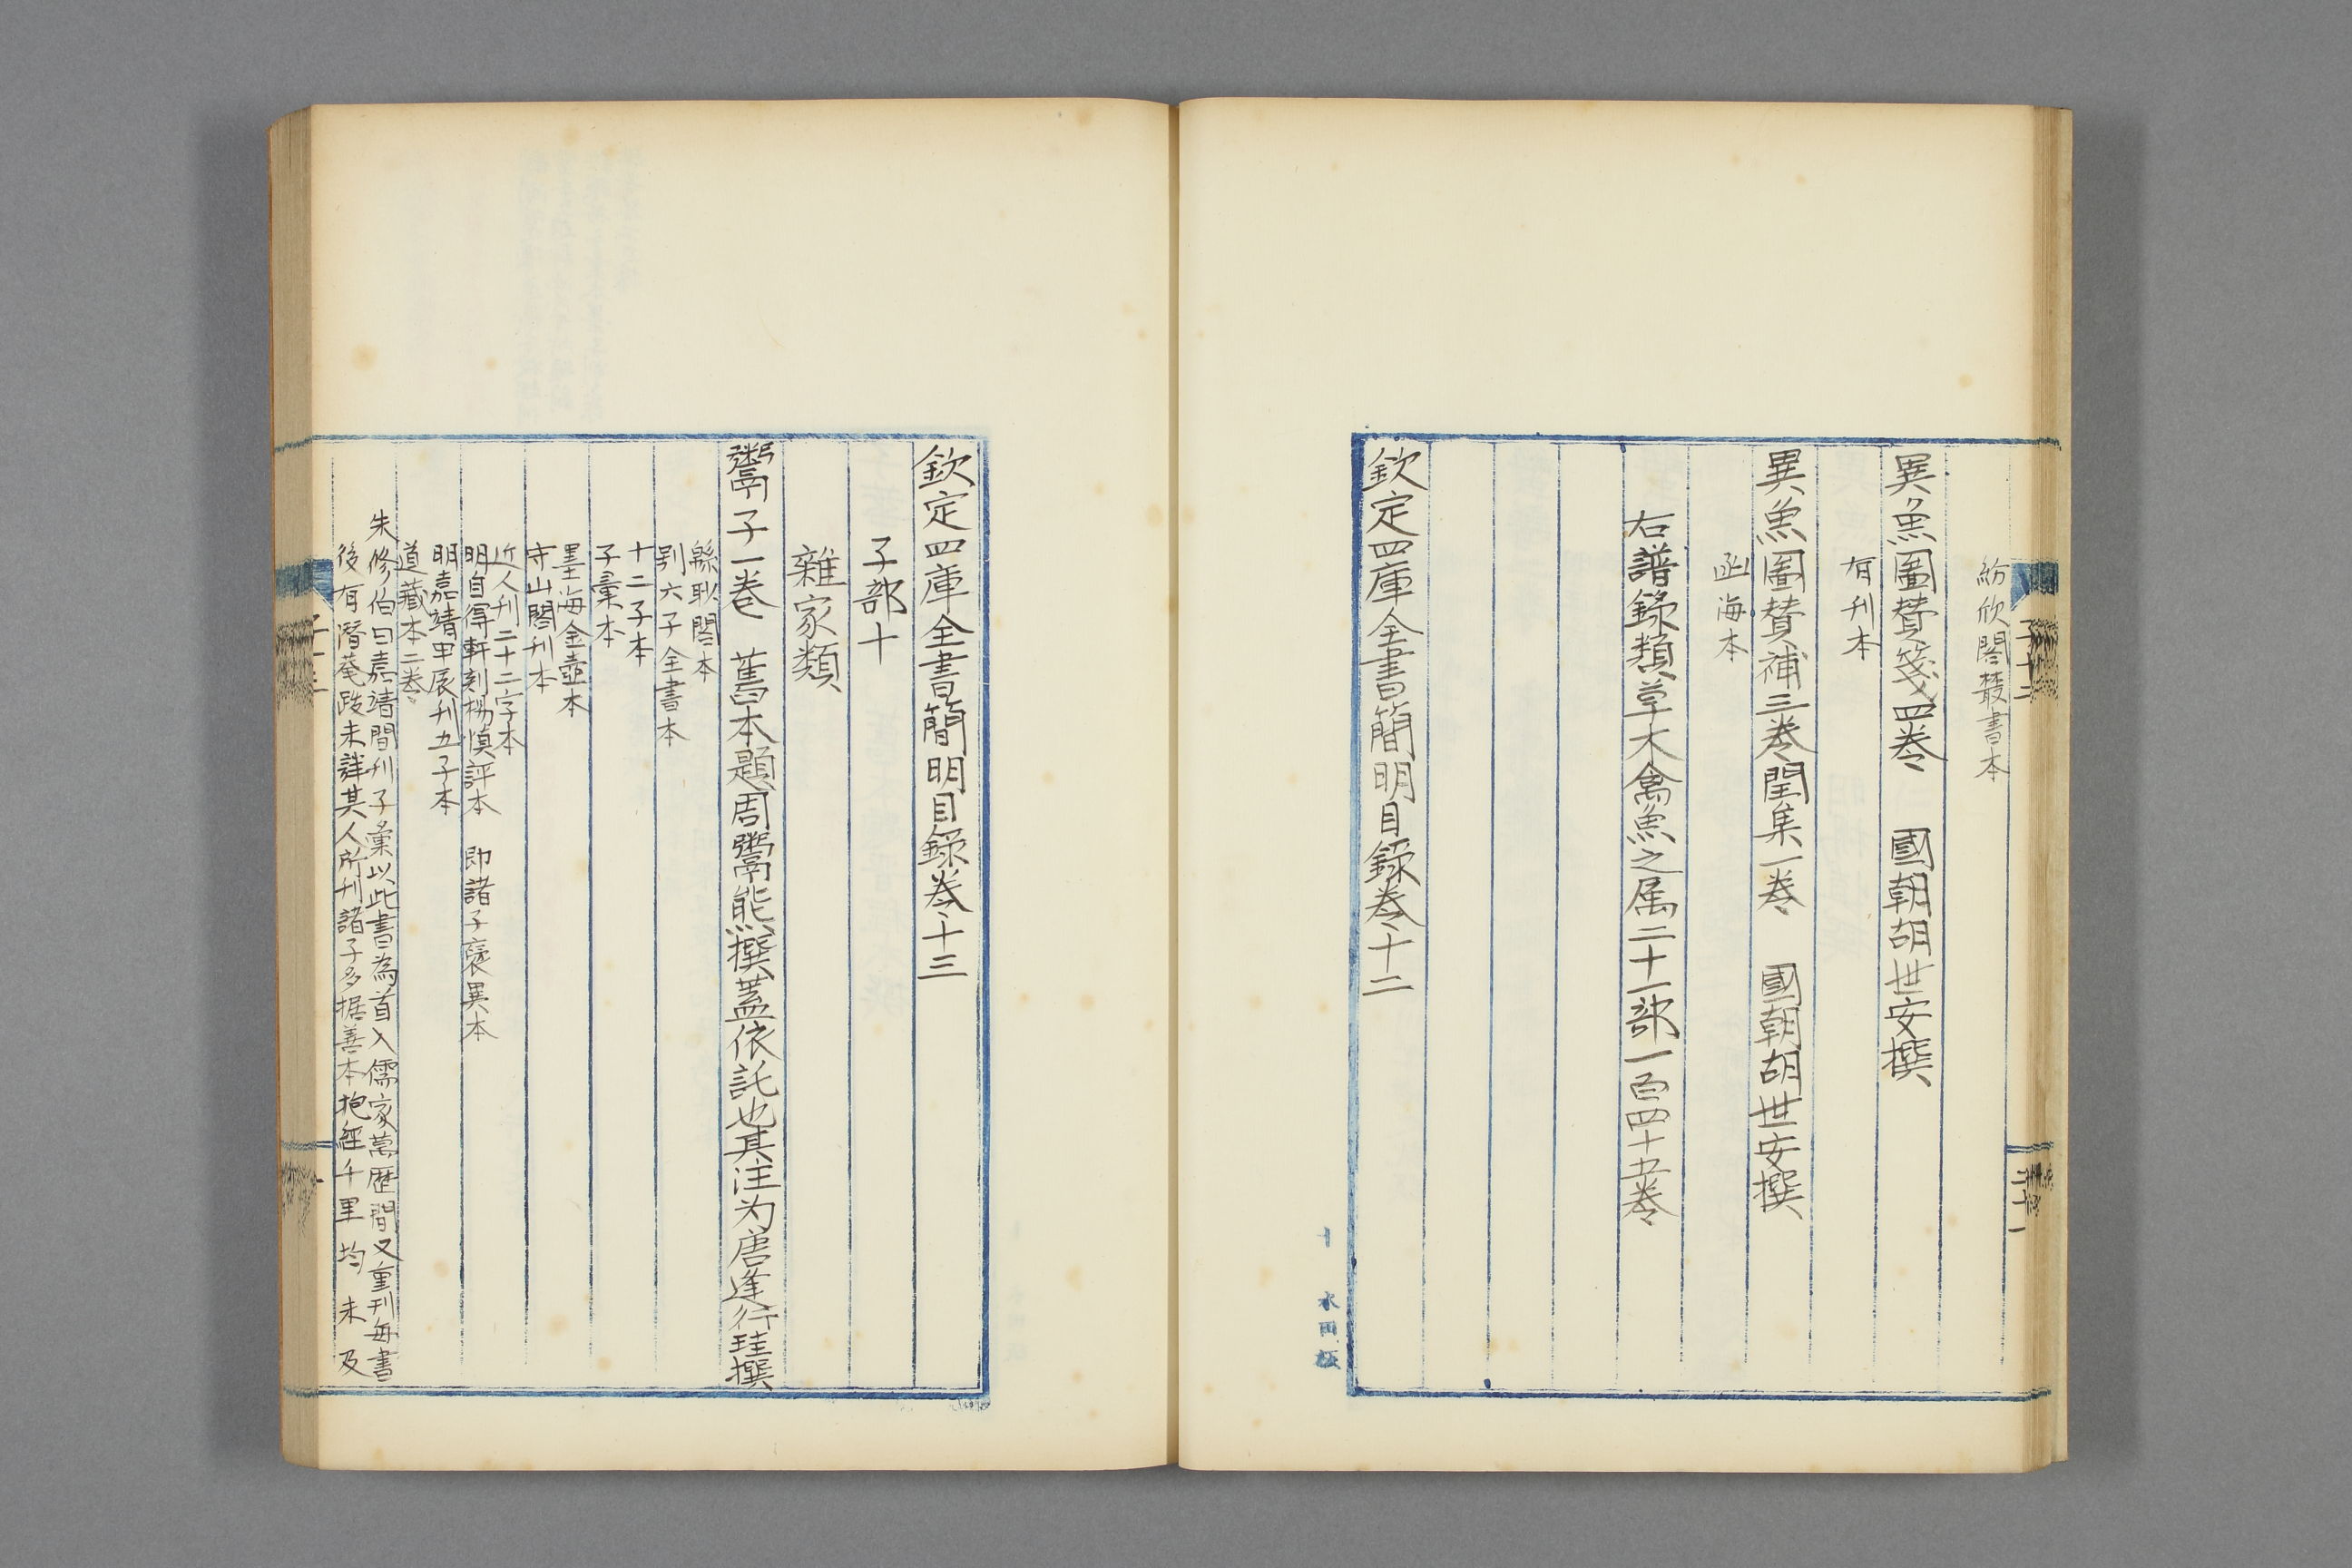 紛欣閣叢書本
異魚圖贊箋四卷　國朝胡世安撰
有刊本
異魚圖贊補三卷閏集一卷　國朝胡世安撰
函海本
右譜錄類草木禽魚之属二十一部一百四十五卷
欽定四庫全書簡明目錄卷十二
子十二
二十一
十　水田板
欽定四庫全書簡明目錄卷十三
子部十
雜家類
鬻子一卷　舊本題周鬻熊撰蓋依託也其注为唐逢行珪撰
緜眇閣本
别六子全書本
十二子本
子彙本
墨海金壺本
守山閣刊本
近人刊二十二字本
明自得軒刻楊慎評本　即諸子褒異本
明嘉靖甲辰刊五子本
道藏本二卷
朱修伯曰嘉靖間刊子彙以此書為首入儒家萬歷間又重刊每書
後有潛菴跋未詳其人所刊諸子多据善本抱經千里均未及
子十三